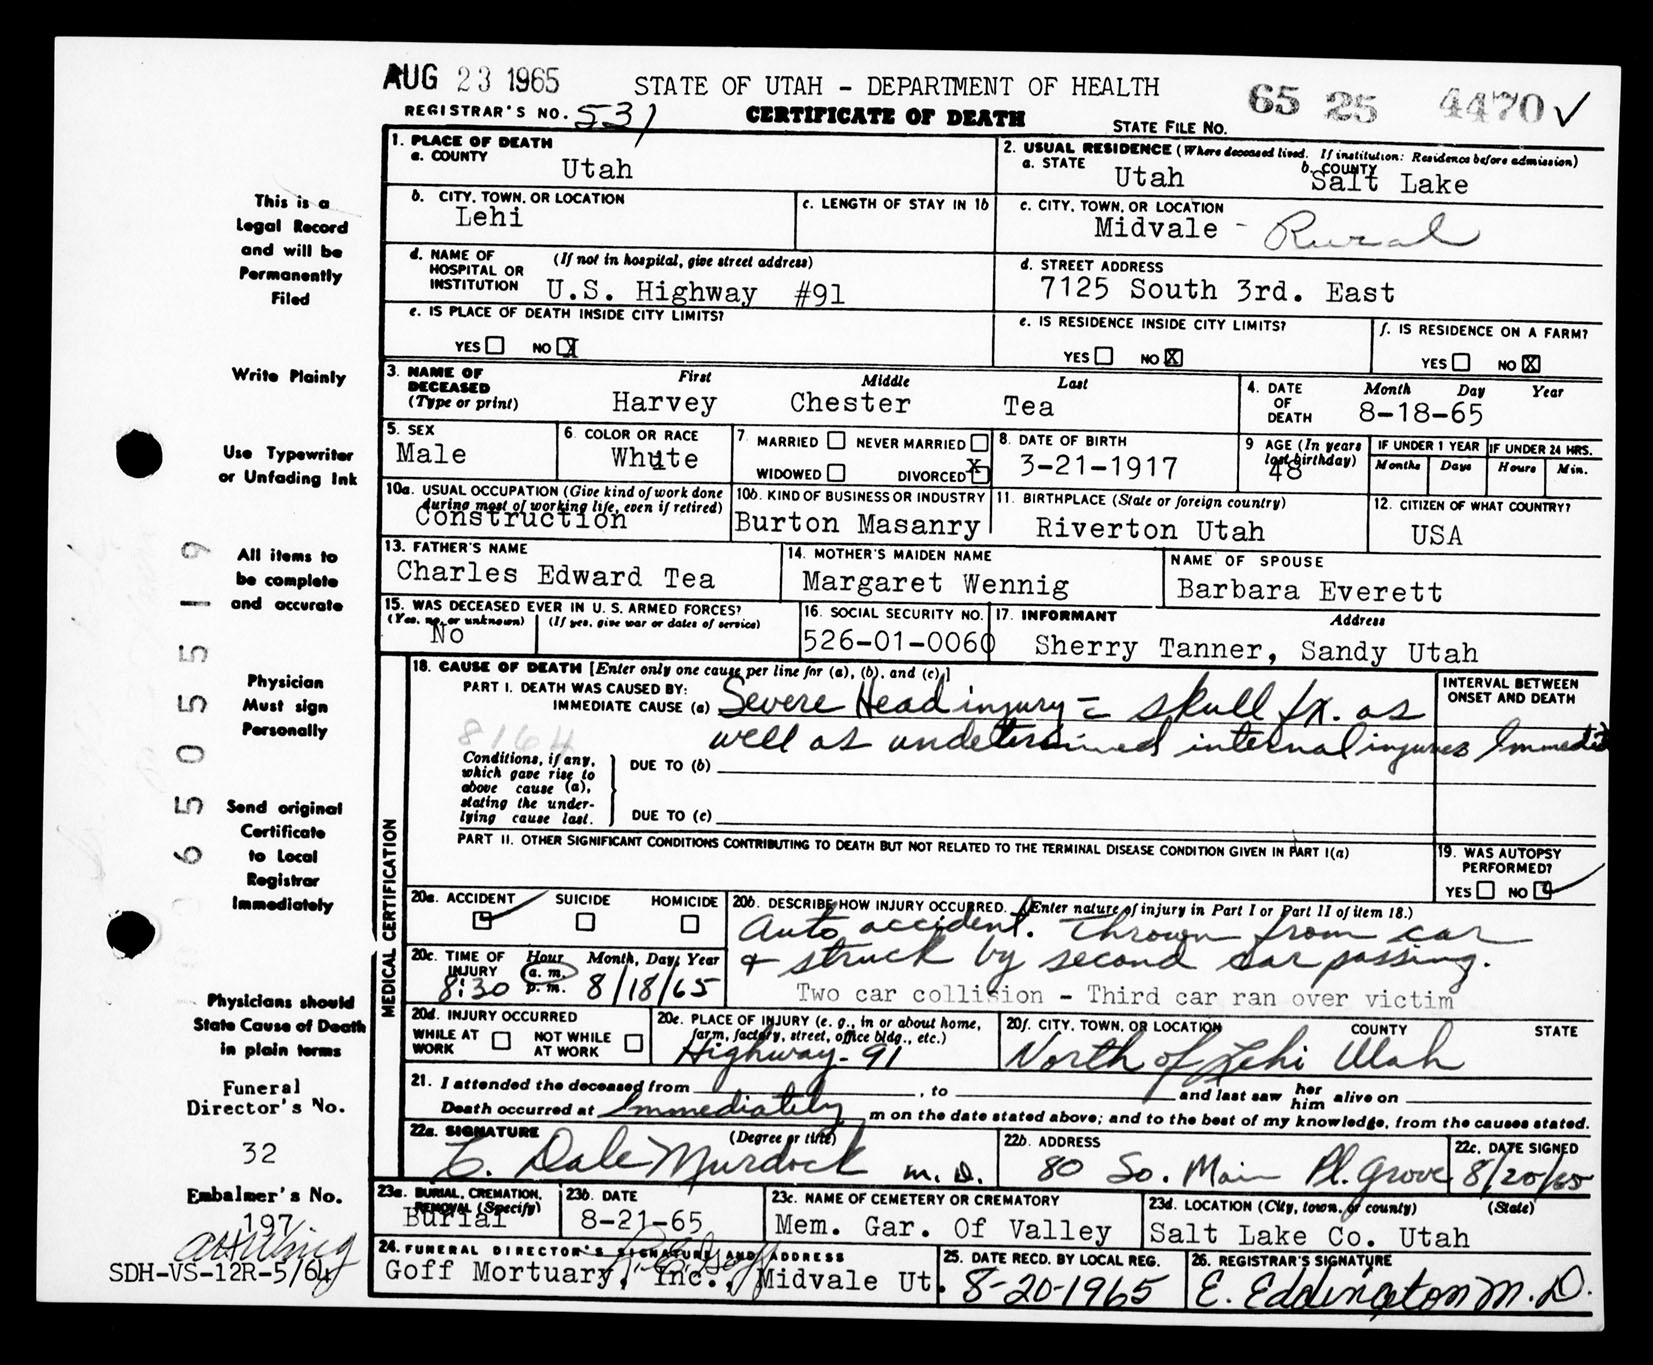 AUG 23 1965
STATE OF UTAH - DEPARTMENT OF HEALTH
65 25 4470 ✓
REGISTRAR'S NO. 531
CERTIFICATE OF DEATH
STATE FILE NO.
1. PLACE OF DEATH
a. COUNTY
Utah
2. USUAL RESIDENCE (Where deceased lived. If institution: Residence before admission)
a. STATE
Utah
b. COUNTY
Salt Lake
b. CITY, TOWN, OR LOCATION
Lehi
c. LENGTH OF STAY IN 1b
c. CITY, TOWN, OR LOCATION
Midvale - Rural
d. NAME OF HOSPITAL OR INSTITUTION
(If not in hospital, give street address)
U.S. Highway #91
d. STREET ADDRESS
7125 South 3rd. East
e. IS PLACE OF DEATH INSIDE CITY LIMITS?
YES NO X
e. IS RESIDENCE INSIDE CITY LIMITS?
YES NO X
f. IS RESIDENCE ON A FARM?
YES NO X
3. NAME OF DECEASED (Type or print)
First Middle Last
Harvey Chester Tea
4. DATE OF DEATH
Month Day Year
8-18-65
5. SEX
Male
6. COLOR OR RACE
White
7. MARRIED NEVER MARRIED
WIDOWED DIVORCED X
8. DATE OF BIRTH
3-21-1917
9 AGE (In years last birthday)
48
IF UNDER 1 YEAR
Months Days
IF UNDER 24 HRS.
Hours Min.
10a. USUAL OCCUPATION (Give kind of work done during most of working life, even if retired)
Construction
10b. KIND OF BUSINESS OR INDUSTRY
Burton Masanry
11. BIRTHPLACE (State or foreign country)
Riverton Utah
12. CITIZEN OF WHAT COUNTRY?
USA
13. FATHER'S NAME
Charles Edward Tea
14. MOTHER'S MAIDEN NAME
Margaret Wennig
NAME OF SPOUSE
Barbara Everett
15. WAS DECEASED EVER IN U. S. ARMED FORCES?
(Yes, no, or unknown) (If yes, give war or dates of service)
No
16. SOCIAL SECURITY NO.
526-01-0060
17. INFORMANT Address
Sherry Tanner, Sandy Utah
MEDICAL CERTIFICATION
18. CAUSE OF DEATH [Enter only one cause per line for (a), (b), and (c).]
PART I. DEATH WAS CAUSED BY:
IMMEDIATE CAUSE (a) Severe Head injury = skull fx. as
well as undetermined internal injuries
INTERVAL BETWEEN ONSET AND DEATH
8164
Conditions, if any, which gave rise to above cause (a), stating the underlying cause last.
DUE TO (b)
DUE TO (c)
PART II. OTHER SIGNIFICANT CONDITIONS CONTRIBUTING TO DEATH BUT NOT RELATED TO THE TERMINAL DISEASE CONDITION GIVEN IN PART I(a)
19. WAS AUTOPSY PERFORMED?
YES NO ✓
20a. ACCIDENT ✓ SUICIDE HOMICIDE
20b. DESCRIBE HOW INJURY OCCURRED. (Enter nature of injury in Part I or Part II of item 18.)
Auto accident. Thrown from car
& struck by second car passing.
Two car collision - Third car ran over victim
20c. TIME OF INJURY
Hour Month, Day, Year
8:30 a.m. p.m. 8/18/65
20d. INJURY OCCURRED
WHILE AT WORK NOT WHILE AT WORK
20e. PLACE OF INJURY (e. g., in or about home, farm, factory, street, office bldg., etc.)
Highway-91
20f. CITY, TOWN, OR LOCATION COUNTY STATE
North of Lehi Utah
21. I attended the deceased from , to and last saw her him alive on
Death occurred at Immediately m on the date stated above; and to the best of my knowledge, from the causes stated.
22a. SIGNATURE (Degree or title)
Dale Murdock M.D.
22b. ADDRESS
80 So. Main Pl. Grove
22c. DATE SIGNED
8/20/65
23a. BURIAL, CREMATION, REMOVAL (Specify)
Burial
23b. DATE
8-21-65
23c. NAME OF CEMETERY OR CREMATORY
Mem. Gar. Of Valley
23d. LOCATION (City, town, or county) (State)
Salt Lake Co. Utah
24. FUNERAL DIRECTOR'S SIGNATURE AND ADDRESS
Goff Mortuary, Inc., Midvale Ut.
25. DATE RECD. BY LOCAL REG.
8-20-1965
26. REGISTRAR'S SIGNATURE
E. Eddington M.D.
This is a
Legal Record
and will be
Permanently
Filed
Write Plainly
Use Typewriter
or Unfading Ink
All items to
be complete
and accurate
Physician
Must sign
Personally
Send original
Certificate
to Local
Registrar
Immediately
Physicians should
State Cause of Death
in plain terms
Funeral
Director's No.
32
Embalmer's No.
197
SDH-VS-12R-5/64
6 5 0 5 5 1 9